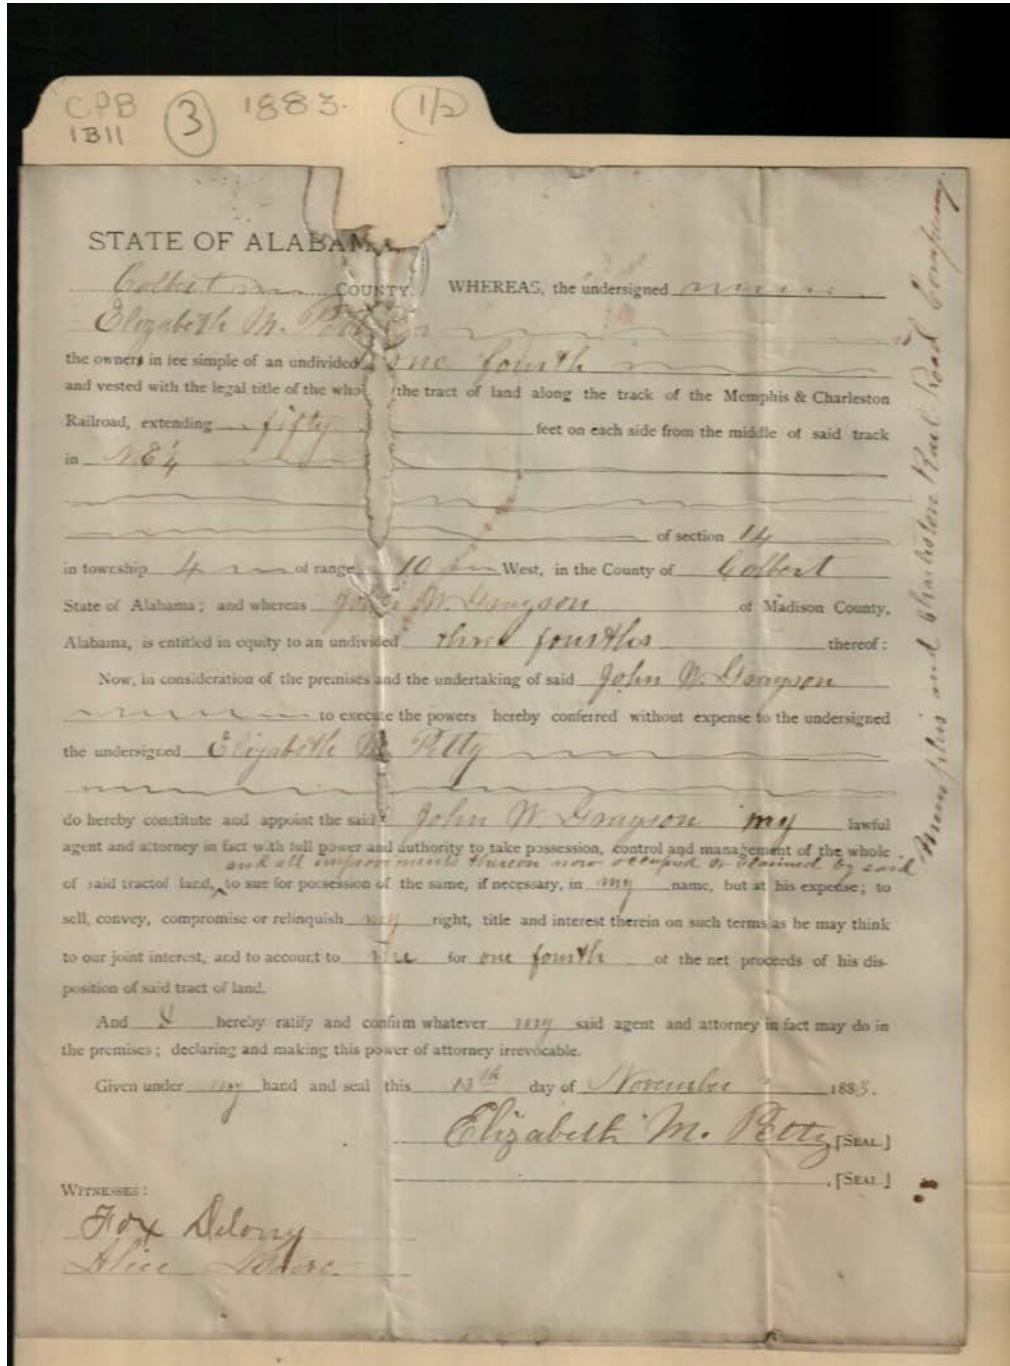 CPB 3 1883. 1/2
1B11
STATE OF ALABAMA
Colbert COUNTY. WHEREAS, the undersigned
Elizabeth M. Petty is
the owners in fee simple of an undivided one fourth
and vested with the legal title of the whol the tract of land along the track of the Memphis & Charleston
Railroad, extending fifty feet on each side from the middle of said track
in N.E¼
of section 14
in township 4 of range 10 West, in the County of Colbert
State of Alabama; and whereas John W. Grayson of Madison County,
Alabama, is entitled in equity to an undivided three fourths thereof:
Now, in consideration of the premises and the undertaking of said John W. Grayson
to execute the powers hereby conferred without expense to the undersigned
the undersigned Elizabeth M. Petty
do hereby constitute and appoint the said John W. Grayson my lawful
agent and attorney in fact with full power and authority to take possession, control and management of the whole
and all improvements thereon now occupied or claimed by said
Memphis and Charleston Rail Road Company.
of said tract of land, to sue for possession of the same, if necessary, in my name, but at his expense; to
sell, convey, compromise or relinquish my right, title and interest therein on such terms as he may think
to our joint interest, and to account to me for one fourth of the net proceeds of his dis-
position of said tract of land.
And I hereby ratify and confirm whatever my said agent and attorney in fact may do in
the premises; declaring and making this power of attorney irrevocable.
Given under my hand and seal this 13th day of November 1883.
Elizabeth M. Petty [SEAL]
[SEAL]
WITNESSES:
Fox Delony
Alice